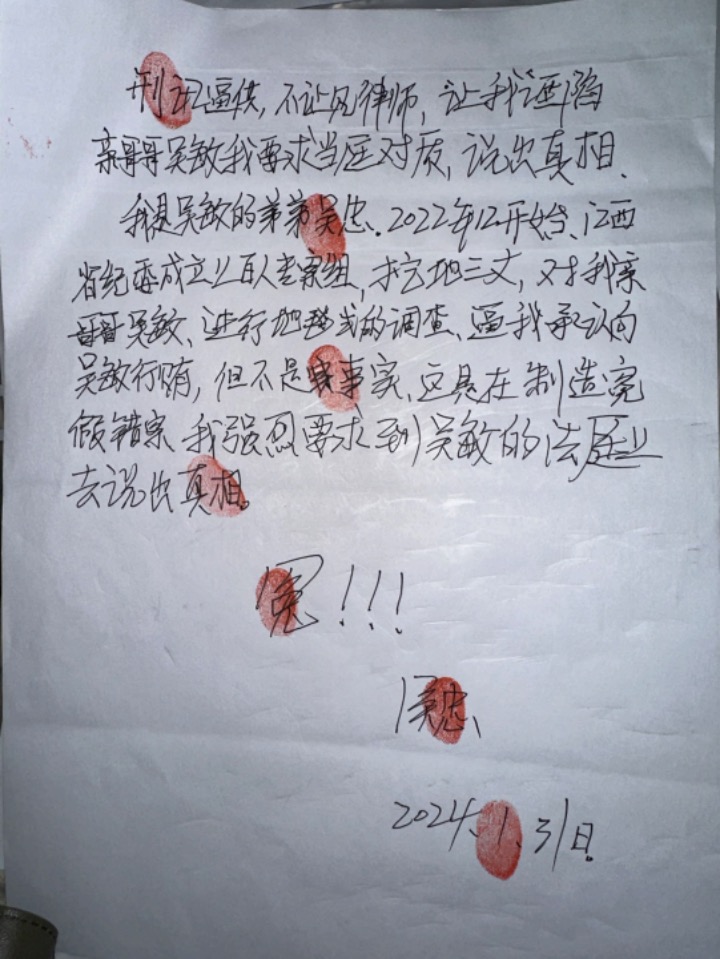 刑讯逼供,不让见律师,让我诬陷
亲哥哥吴敏我要求当庭对质,说出真相.
我是吴敏的弟弟吴忠.2022年12开始、江西
省纪委成立上百人专案组,挖地三丈,对我亲
哥哥吴敏、进行地毯式的调查、逼我承认向
吴敏行贿,但不是事实、这是在制造冤
假错案 我强烈要求到吴敏的法庭上
去说出真相。
冤!!!
吴忠、
2024.1.31日.